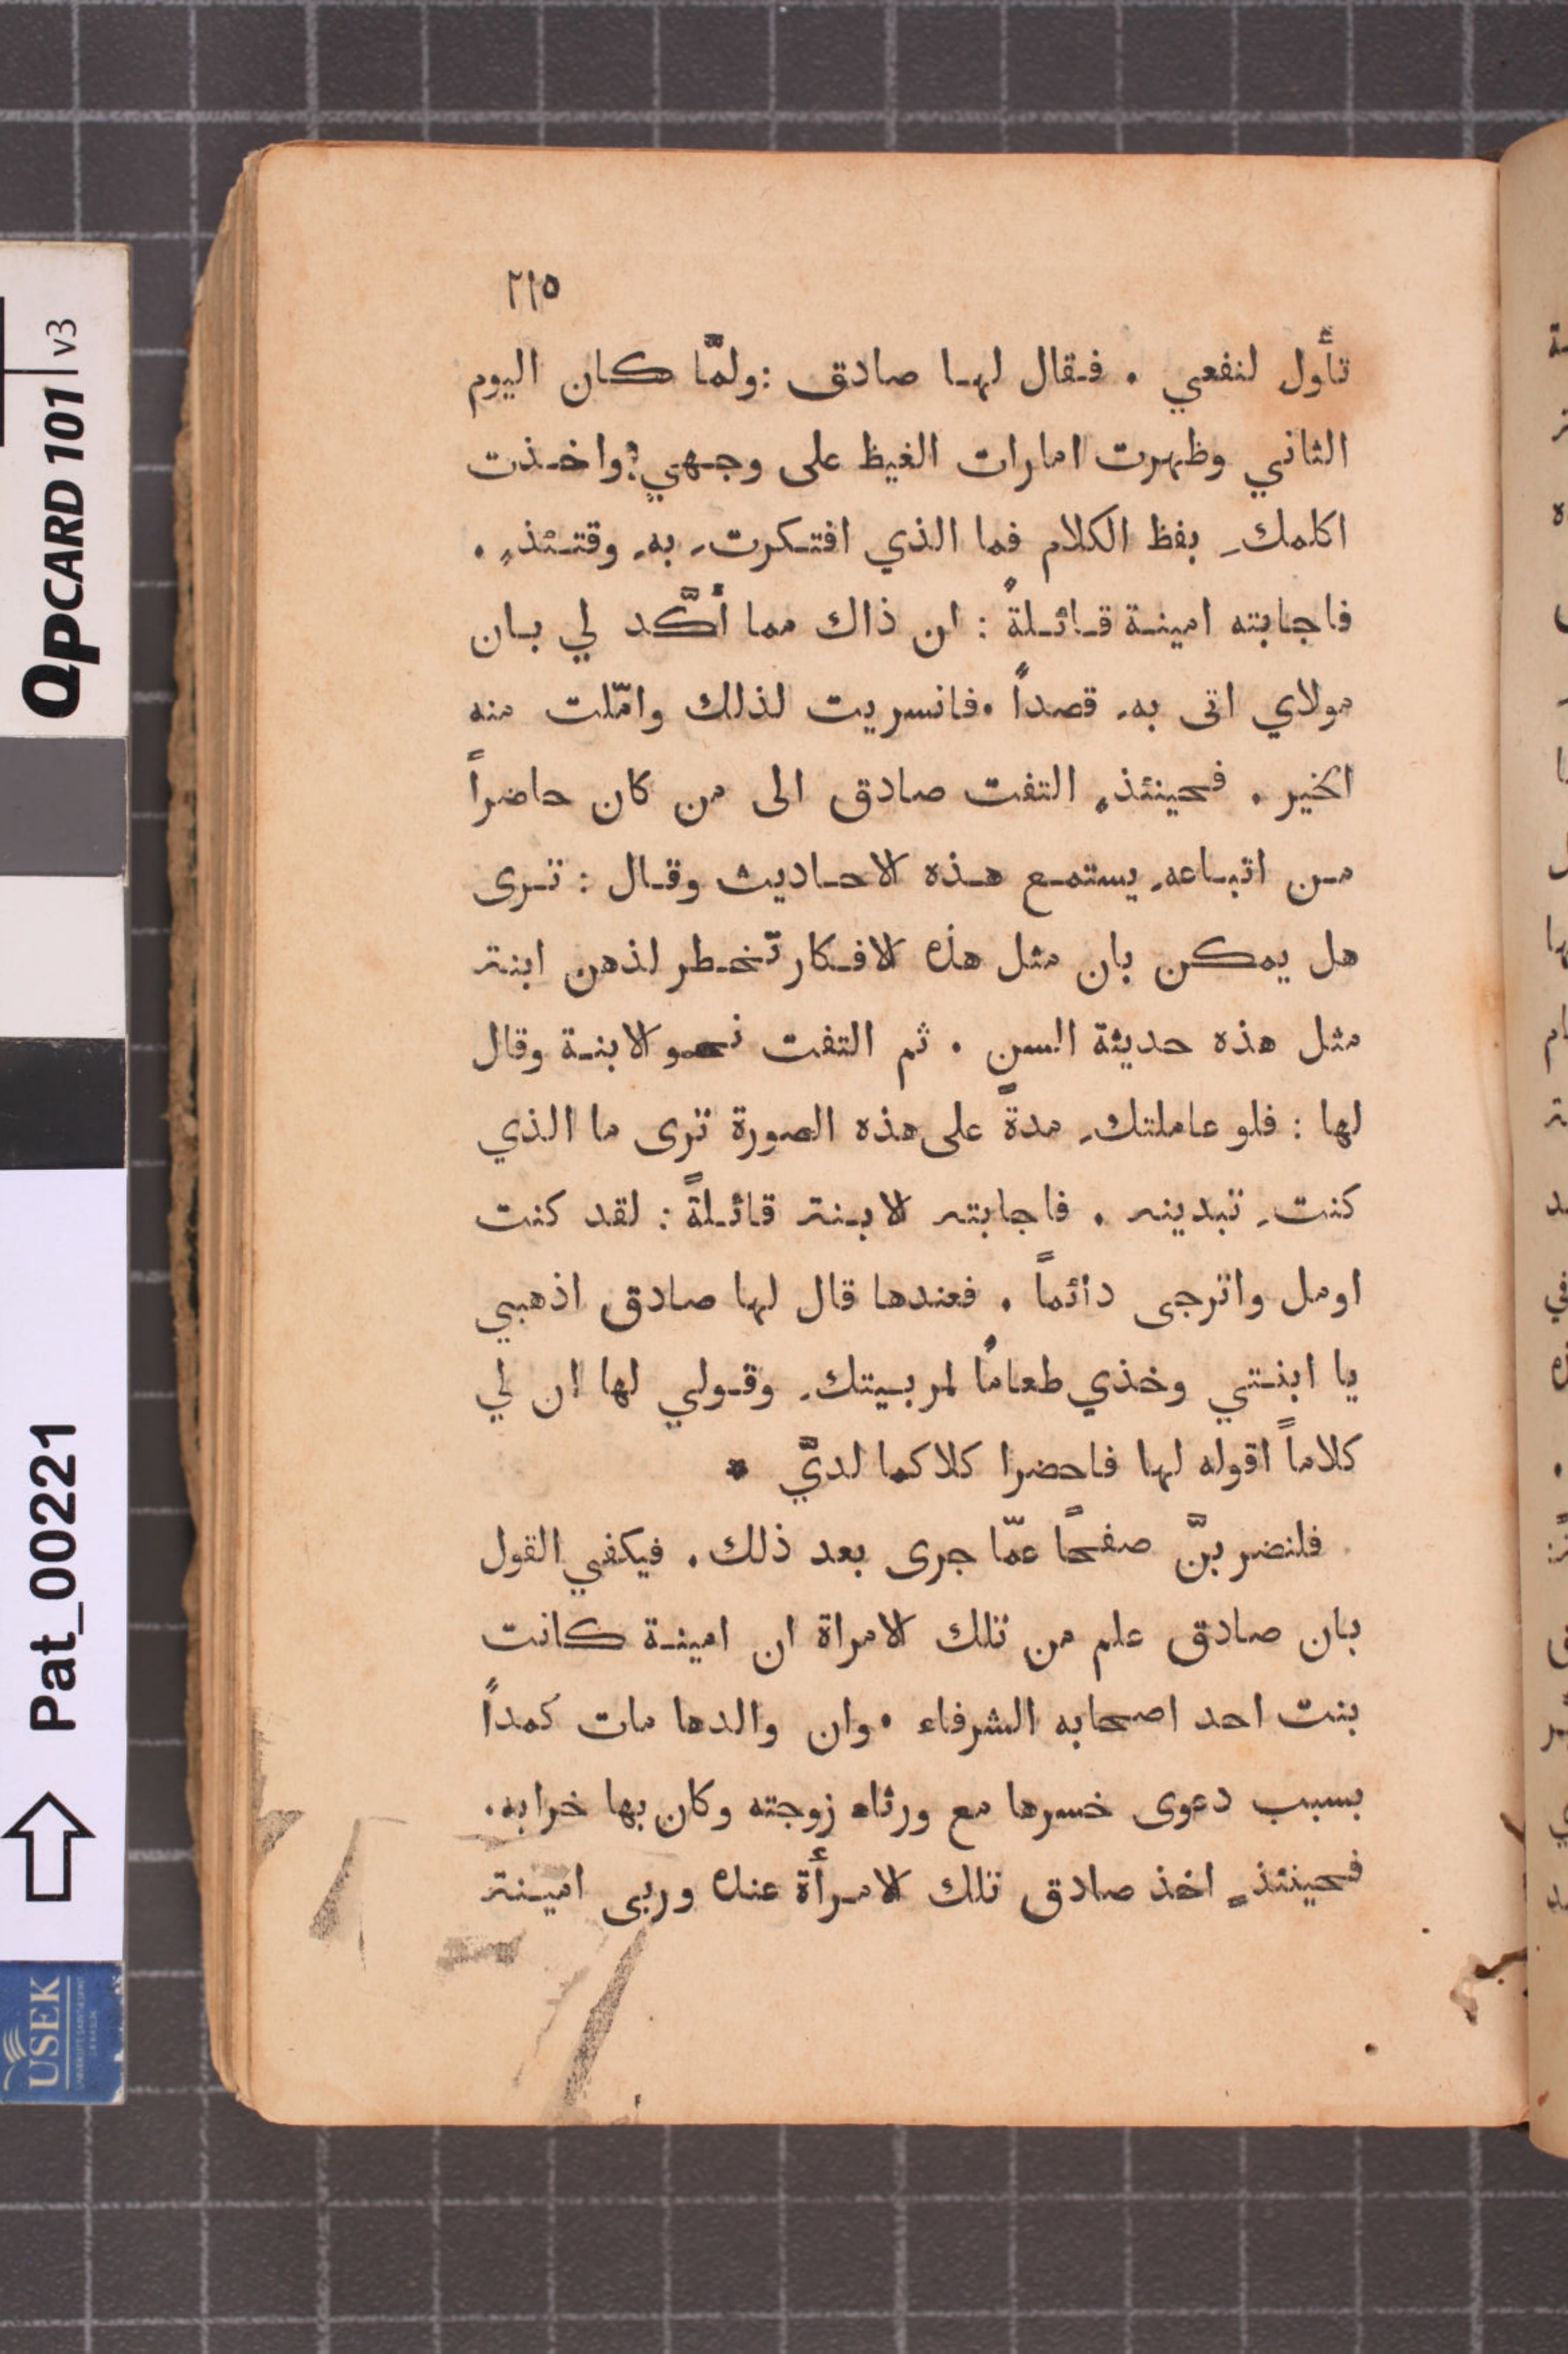 ٢١٥
تأول لنفعي . فقال لها صادق : ولمّا كان اليوم
الثاني وظهرت امارات الغيظ على وجهي ; واخذت
اكلمكِ بفظ الكلام فما الذي افتكرتِ بهِ وقتئذٍ .
فاجابته امينة قائلةً : ان ذاك مما أكَّد لي بان
مولاي اتى بهِ قصداً . فانسريت لذلك وامّلت منه
الخير . فحينئذٍ التفت صادق الى من كان حاضراً
من اتباعهِ يستمع هذه الاحاديث وقال : ترى
هل يمكن بان مثل هذه الافكار تخطر لذهن ابنة
مثل هذه حديثة السن . ثم التفت نحو الابنة وقال
لها : فلو عاملتكِ مدةً على هذه الصورة ترى ما الذي
كنتِ تبدينه . فاجابته الابنة قائلةً : لقد كنت
اومل واترجى دائماً . فعندها قال لها صادق اذهبي
يا ابنتي وخذي طعامًا لمربيتكِ وقولي لها ان لي
كلاماً اقوله لها فاحضرا كلاكما لديَّ *
فلنضربنَّ صفحًا عمّا جرى بعد ذلك . فيكفي القول
بان صادق علم من تلك الامراة ان امينة كانت
بنت احد اصحابه الشرفاء . وان والدها مات كمداً
بسبب دعوى خسرها مع ورثاء زوجته وكان بها خرابه .
فحينئذٍ اخذ صادق تلك الامرأة عنده وربى امينة
QPCARD 101 v3
Pat_00221
USEK